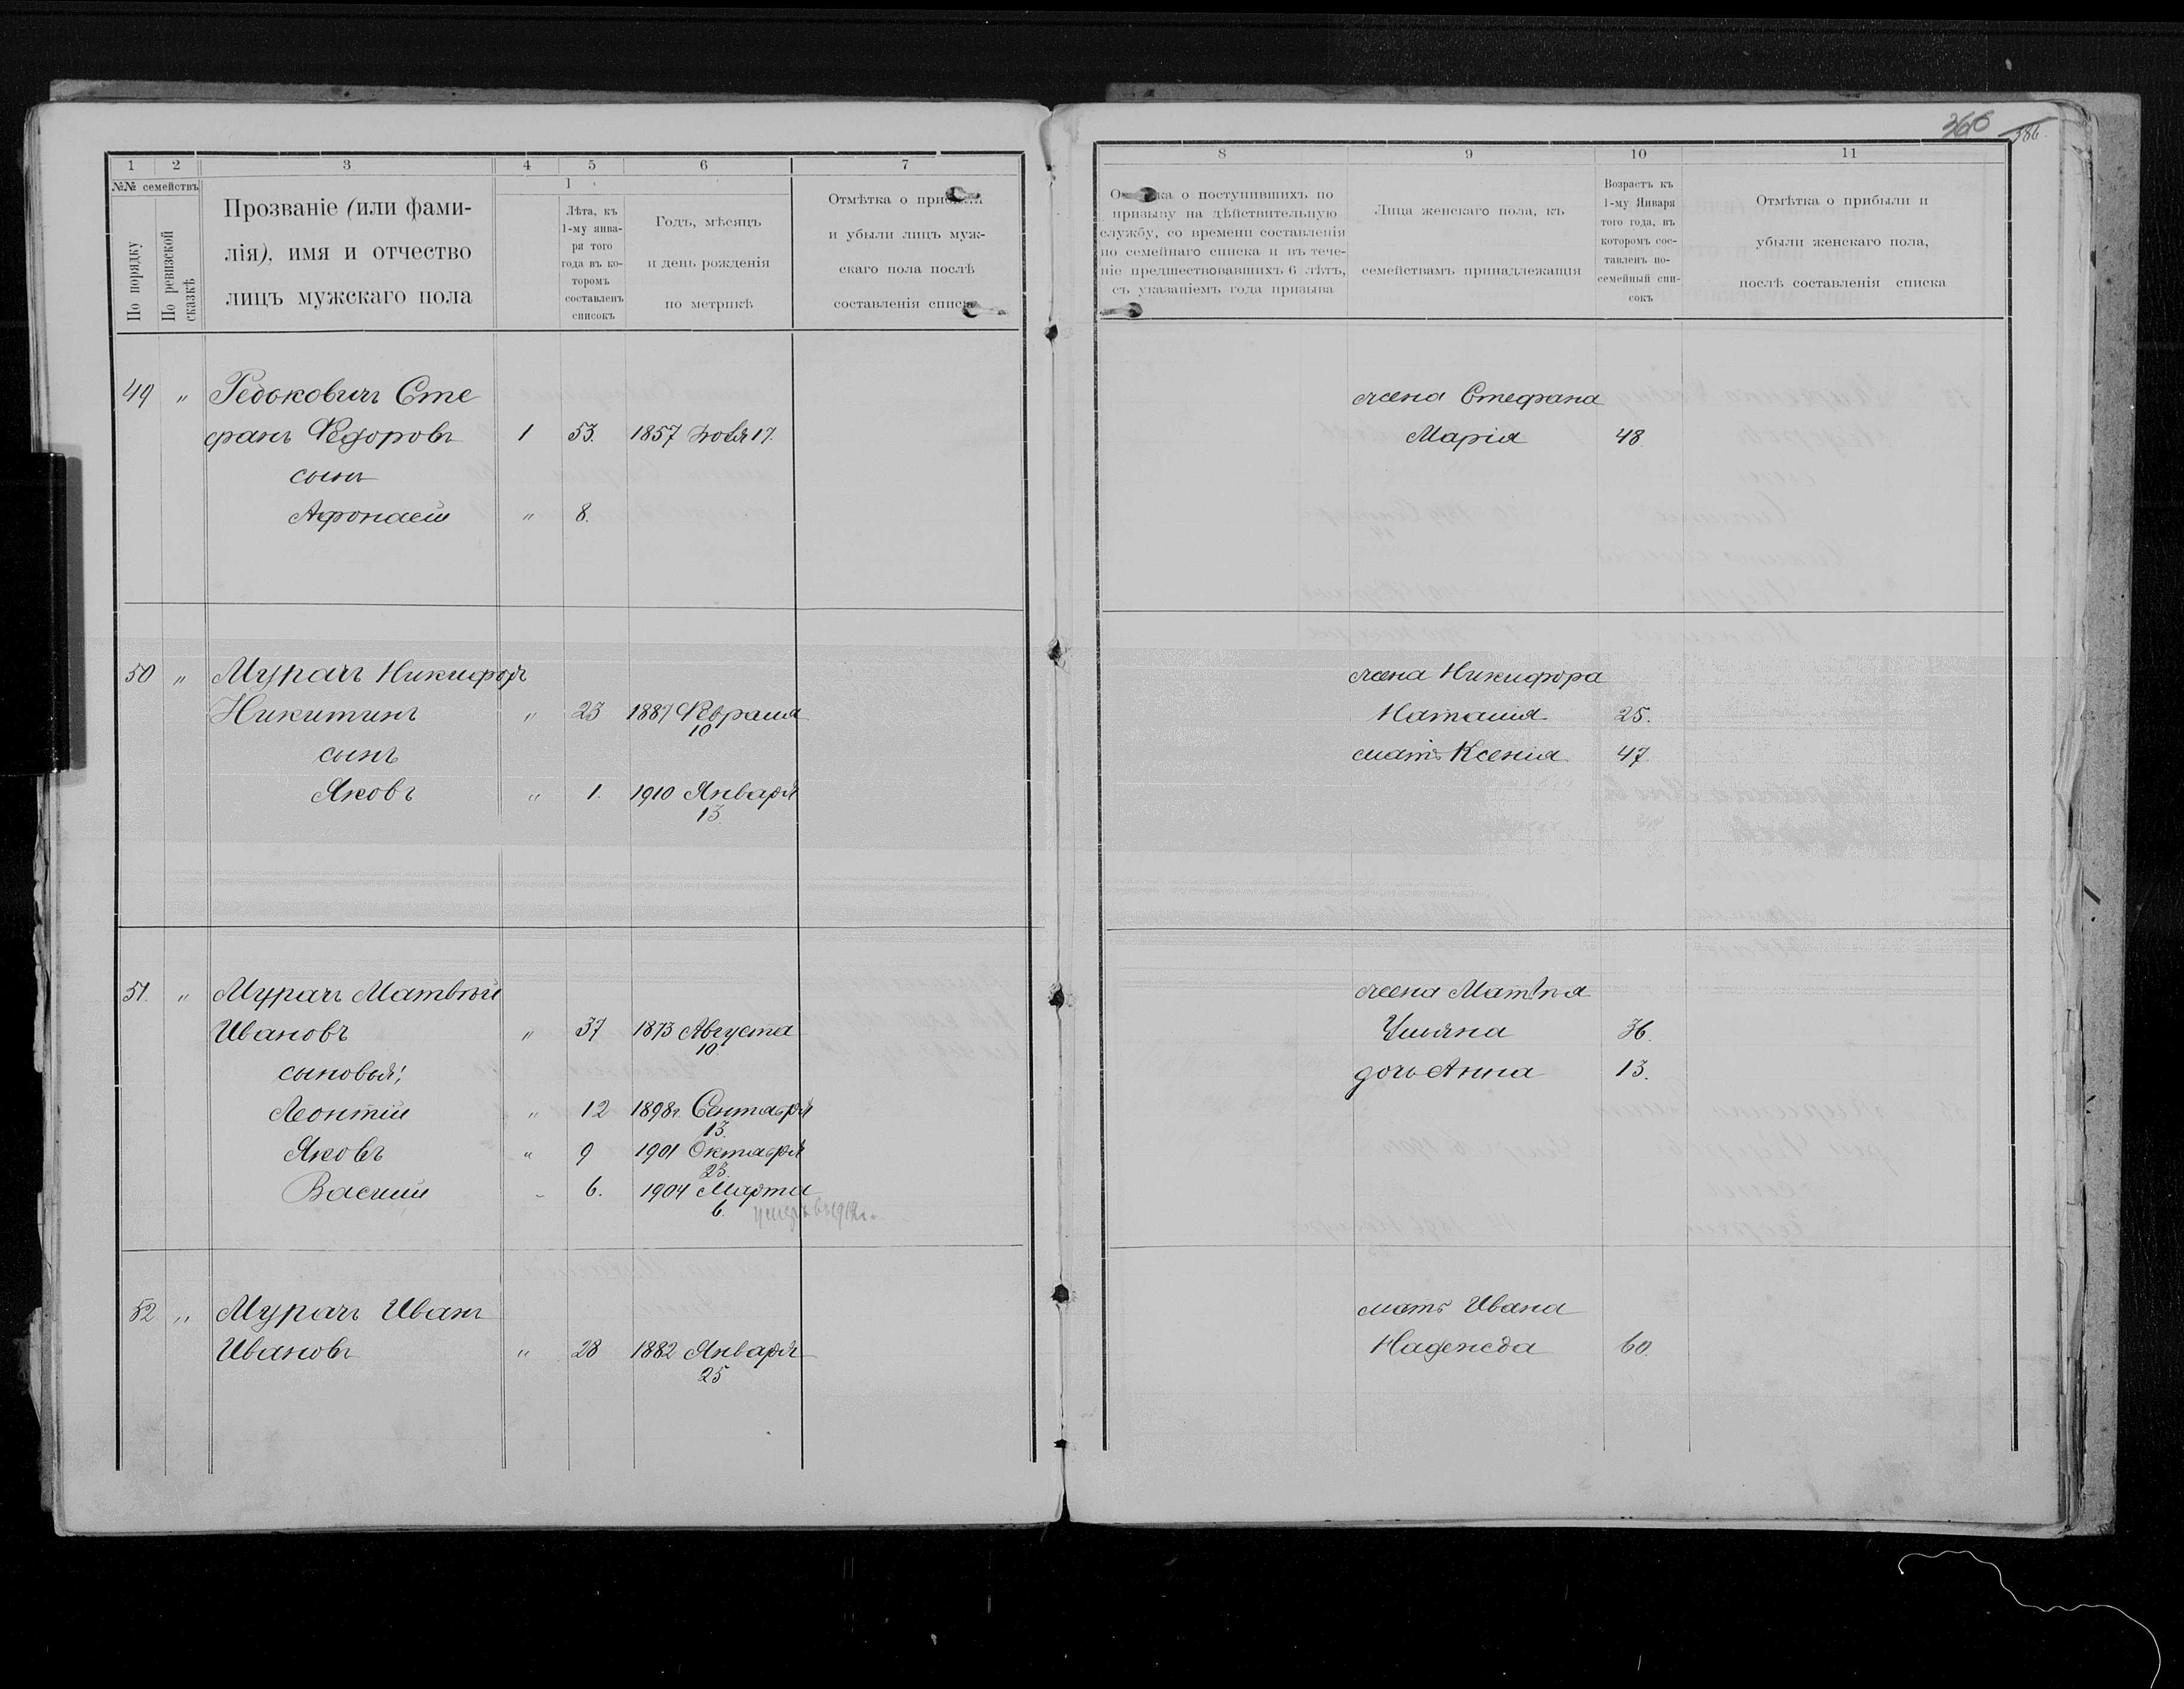 366 386.
1 2 3 4 5 6 7
№№ семействъ
По порядку
По ревизской сказкѣ
Прозваніе (или фами-
лія), имя и отчество
лицъ мужскаго пола
1
Лѣта, къ
1-му янва-
ря того
года въ ко-
торомъ
составленъ
списокъ
Годъ, мѣсяцъ
и день рожденія
по метрикѣ
Отмѣтка о прибыли
и убыли лицъ муж-
скаго пола послѣ
составленія списка
8 9 10 11
Отмѣтка о поступившихъ по
призыву на дѣйствительную
службу, со времени составленія
по семейнаго списка и въ тече-
ніе предшествовавшихъ 6 лѣтъ,
съ указаніемъ года призыва
Лица женскаго пола, къ
семействамъ принадлежащія
Возрастъ къ
1-му Января
того года, въ
которомъ сос-
тавленъ по-
семейный спи-
сокъ
Отмѣтка о прибыли и
убыли женскаго пола,
послѣ составленія списка
49 " Редоковичъ Сте
фанъ Федоровъ 1 53. 1857 17.
сынъ
Афонасій " 8.
жена Стефана
Марія 48
50 " Мурачъ Никифоръ
Никитинъ " 23 1887 Февраля
10
сынъ
Яковъ " 1. 1910 Января
13.
жена Никифора
Наталія 25.
мать Ксенія 47
51. " Мурачъ Матвѣй
Ивановъ " 37 1873 Августа
10.
сыновья:
Леонтій " 12 1898г. Сентября
13.
Яковъ " 9 1901 Октября
23.
Василій " 6. 1904 Марта
6. умеръ въ 1912г.
жена Матвѣя
Ульяна 36.
дочь Анна 13.
52 " Мурачъ Иванъ
Ивановъ " 28 1882 Января
25
мать Ивана
Надежда 60.